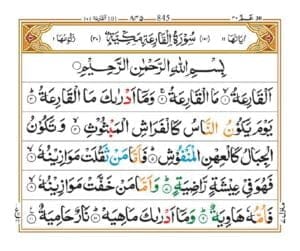 ٨٤٥ 845
سُوْرَةُ الْقَارِعَةِ مَكِّيَّةٌ
بِسْمِ اللهِ الرَّحْمٰنِ الرَّحِيْمِ
اَلْقَارِعَةُ ۙ مَا الْقَارِعَةُ ۚ وَمَآ اَدْرٰىكَ مَا الْقَارِعَةُ ۗ
يَوْمَ يَكُوْنُ النَّاسُ كَالْفَرَاشِ الْمَبْثُوْثِ ۙ وَتَكُوْنُ
الْجِبَالُ كَالْعِهْنِ الْمَنْفُوْشِ ۗ فَاَمَّا مَنْ ثَقُلَتْ مَوَازِيْنُهٗ ۙ
فَهُوَ فِيْ عِيْشَةٍ رَّاضِيَةٍ ۗ وَاَمَّا مَنْ خَفَّتْ مَوَازِيْنُهٗ ۙ
فَاُمُّهٗ هَاوِيَةٌ ۗ وَمَآ اَدْرٰىكَ مَاهِيَهْ ۗ نَارٌ حَامِيَةٌ